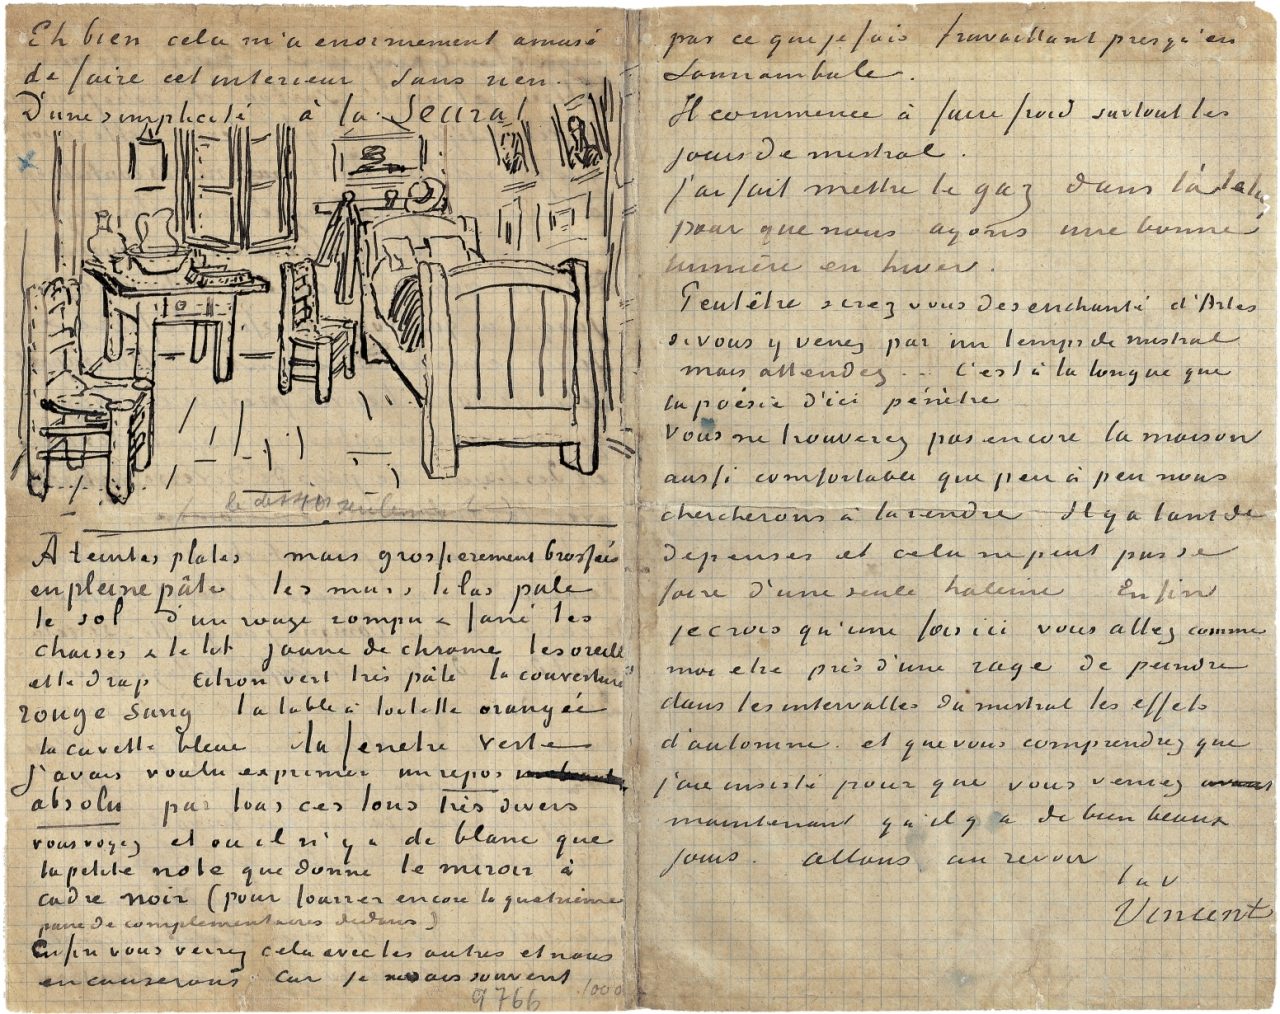 Eh bien cela m'a enormement amusé
de faire cet interieur sans rien.
D'une simplicité à la Seurat
le dessin seulement
A teintes plates mais grossierement brossées
en pleine pâte les murs lilas pale
le sol d'un rouge rompu & fané les
chaises & le lit jaune de chrome les oreillers
et le drap citron vert très pâle la couverture
rouge sang la table à toilette orangée
la cuvette bleue la fenetre verte
J'avais voulu exprimer un repos
absolu par tous ces tons très divers
vous voyez et où il n'y a de blanc que
la petite note que donne le miroir à
cadre noir (pour fourrer encore la quatrième
paire de complementaires dedans)
Enfin vous verrez cela avec les autres et nous
en causerons car je ne sais souvent
9766 1000
par ce que je fais travaillant presqu'en
somnambule.
Il commence à faire froid surtout les
jours de mistral.
J'ai fait mettre le gaz dans l'atelier
pour que nous ayons une bonne
lumière en hiver.
Peutêtre serez vous desenchanté d'Arles
si vous y venez par un temps de mistral
mais attendez .. C'est à la longue que
la poésie d'ici pénètre
Vous ne trouverez pas encore la maison
aussi comfortable que peu à peu nous
chercherons à la rendre Il y a tant de
depenses et cela ne peut pas se
faire d'une seule haleine Enfin
je crois qu'une fois ici vous allez comme
moi etre pris d'une rage de peindre
dans les intervalles du mistral les effets
d'automne. et que vous comprendrez que
j'aie insisté pour que vous veniez
maintenant qu'il y a de bien beaux
jours. allons au revoir
t. à v
Vincent